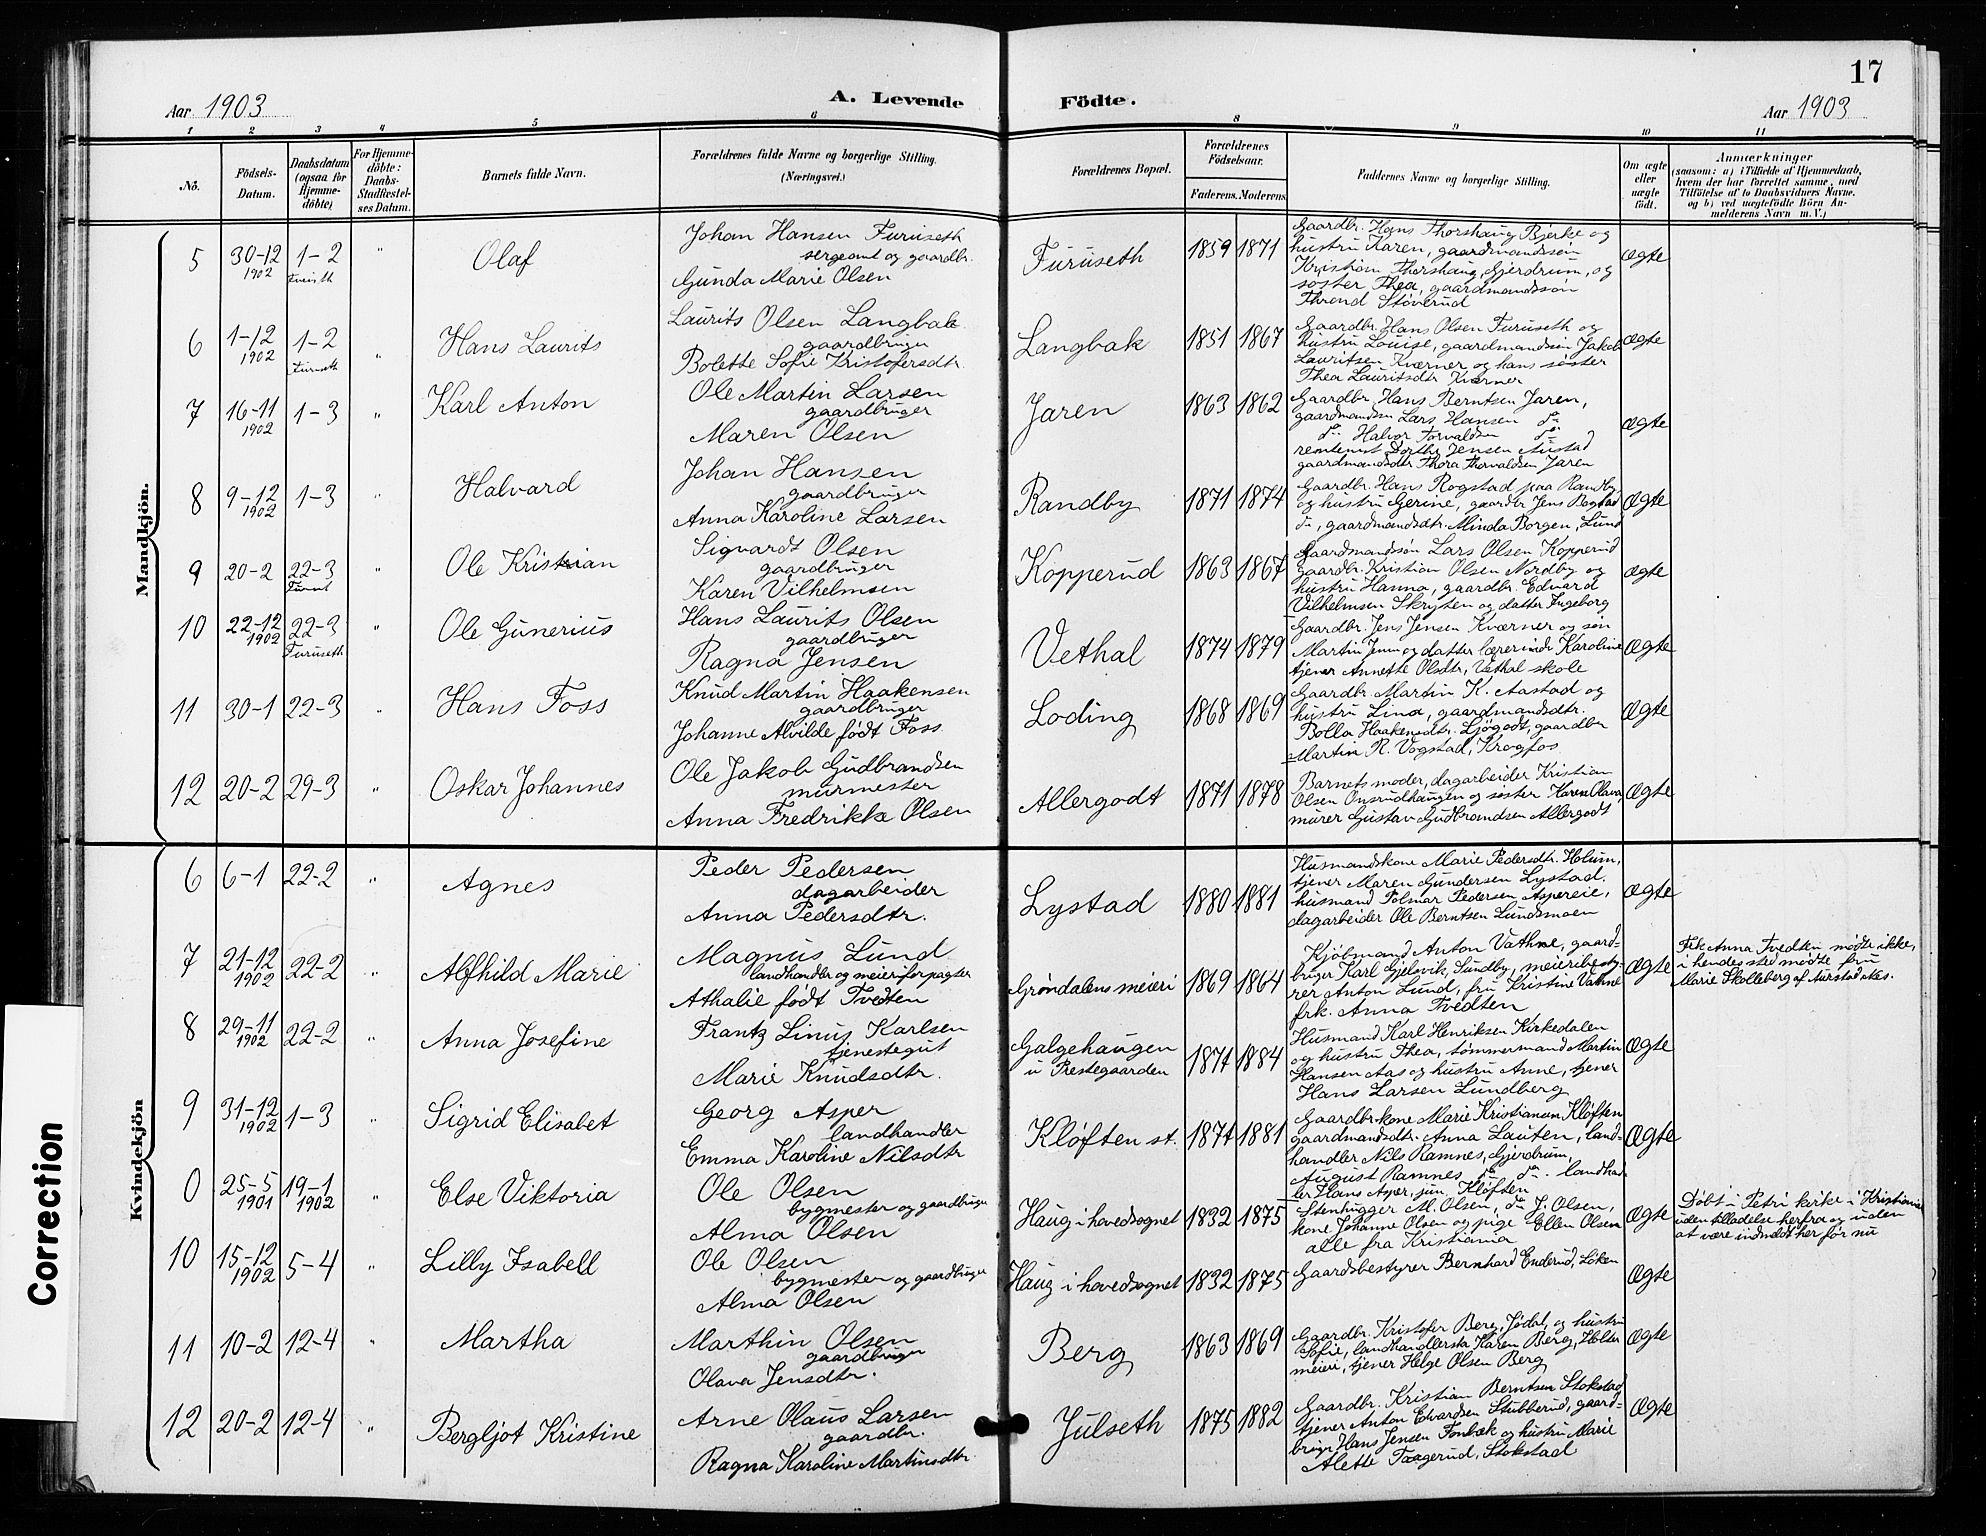 17
Aar 1903
A. Levende
Födte.
Aar 1903
1 2 3 4 5 6 8 9 10 11
No.
Födsels-Datum.
Daabsdatum (ogsaa for Hjemmedöbte)
For Hjemmedöbte: Daabs-Stadfæstelses Datum.
Barnets fulde Navn.
Forældrenes fulde Navne og borgerlige Stilling.
(Næringsvei.)
Forældrenes Bopæl.
Forældrenes Födselsaar.
Faderens. Moderens.
Faddernes Navne og borgerlige Stilling.
Om ægte eller uægte födt.
Anmærkninger
(saasom: a) i Tilfælde af Hjemmedaab,
hvem der har forrettet samme, med
Tilföielse af to Daabsvidners Navne.
og b) ved uægtefödte Börn An-
melderens Navn m. V.)
Mandkjön.
5 30-12 1902 1-2 " Olaf
Johan Hansen Furuseth
sergeant og gaardbr.
Gunda Marie Olsen
Furuseth 1859 1871
Gaardbr. Hans Thorshaug Bjerke og
hustru Karen, gaardmandssøn
Kristian Thorshaug, Gjerdrum, og
søster Thea, gaardmandssøn
Thrond Støverud
Ægte
6 1-12 1902 1-2 Furuseth " Hans Laurits
Laurits Olsen Langbak
gaardbruger
Bolette Sofie Kristofersdtr.
Langbak 1851 1867
Gaardbr. Hans Olsen Furuseth og
hustru Louise, gaardmandssøn Jakob
Lauritsen Kværner og hans søster
Thea Lauritsdtr Kværner
Ægte
7 16-11 1902 1-3 " Karl Anton
Ole Martin Larsen
gaardbruger
Maren Olsen
Jaren 1863 1862
Gaardbr. Hans Berntsen Jaren,
gaardmandssn Lars Hansen do
do Halvor Torvaldsen do.
rentenist Dorthe Jensen Austad
gaardmandsdtr Thora Thorvaldsen Jaren
Ægte
8 9-12 1902 1-3 " Halvard
Johan Hansen
gaardbruger
Anna Karoline Larsen
Randby 1871 1874
Gaardbr. Hans Rogstad paa Randby
og hustru Gerine, gaardbr Jens Bogstad
do, gaardmandsdtr. Minda Borgen, Lund
Ægte
9 20-2 22-3 " Ole Kristian
Sigvardt Olsen
gaardbruger
Karen Vilhelmsen
Kopperud 1863 1867
Gaardmandssøn Lars Olsen Kopperud
gaardbr. Kristian Olsen Nordby og
hustru Hanna, gaardbr. Edvard
Vilhelmsen Skrysten og datter Ingeborg
Ægte
10 22-12 1902 22-3 Furuseth " Ole Gunerius
Hans Laurits Olsen
gaardbruger
Ragna Jensen
Vethal 1874 1879
Gaardbr. Jens Jensen Kværner og søn
Martin Jensen og datter lærerinde Karoline
tjener Annette Olsdtr, Vethal skole
Ægte
11 30-1 22-3 " Hans Foss
Knud Martin Haakensen
gaardbruger
Johanne Alvilde født Foss
Loding 1868 1869
Gaardbr. Martin K. Aastad og
hustru Lina, gaardmandsdtr.
Bolla Haakensdtr. Ljøgodt, gaardbr
Martin R. Vogstad, Krogfos
Ægte
12 20-2 29-3 " Oskar Johannes
Ole Jakob Gudbrandsen
murmester
Anna Fredrikke Olsen
Allergodt 1871 1878
Barnets moder, dagarbeider Kristian
Olsen Onsrudhaugen og søster Karen Olava,
murer Gustav Gudbrandsen Allergodt
Ægte
Kvindekjön
6 6-1 22-2 " Agnes
Peder Pedersen
dagarbeider
Anna Pedersdtr.
Lystad 1880 1881
Husmandskone Marie Pedersdtr. Holum,
tjener Maren Gundersen Lystad.
husmand Polmar Pedersen Aspereie,
dagarbeider Ole Berntsen Lundsmoen
Ægte
7 21-12 1902 22-2 " Alfhild Marie
Magnus Lund
landhandler og meieriforpagter
Athalie født Tvedten
Grøndalens meieri 1869 1864
Kjøbmand Anton Vathne, gaard-
bruger Karl Gjelsvik, Sundby, meieribesty-
rer Anton Lund, fru Kristine Vathne
frk. Anna Tvedten
Ægte
Frk Anna Tvedten mødte ikke,
i hendes sted mødte fru
Marie Skolleberg af Aurstad Nes.
8 29-11 1902 22-2 " Anna Josefine
Frantz Linus Karlsen
tjenestegut
Marie Knudsdtr.
Galgehaugen
u Prestegaarden 1874 1884
Husmand Karl Henriksen Kirkedalen
og hustru Thea, tømmermand Martin
Hansen Aas og hustru Anne, tjener
Hans Larsen Lundberg
Ægte
9 31-12 1902 1-3 " Sigrid Elisabet
Georg Asper
landhandler
Emma Karoline Nilsdtr
Kløften st. 1874 1881
Gaardbr.kone Marie Kristiansen Kløften
gaardmandsdtr. Anna Lauten, land-
handler Nils Ramnes, Gjerdrum,
August Ramnes do do. landhand-
ler Hans Asper, jun. Kløften
Ægte
0 25-5 1901 19-1 1902 " Else Viktoria
Ole Olsen
bygmester og gaardbruger
Alma Olsen
Haug i hovedsognet 1832 1875
Stenhugger M. Olsen, do J. Olsen,
kone Johanne Olsen og pige Ellen Olsen
alle fra Kristiania
Ægte
Døbt i Petri kirke i Kristiania
uden tilladelse herfra og uden
at være indmeldt her før nu
10 15-12 1902 5-4 " Lilly Isabell
Ole Olsen
bygmester og gaardbruger
Alma Olsen
Haug i hovedsognet 1832 1875
Gaardsbestyrer Bernhard Enderud, Løken
Ægte
11 10-2 12-4 " Martha
Marthin Olsen
gaardbruger
Olava Jensdtr.
Berg 1863 1869
Gaardbr. Kristofer Berg, Jødal, og hustru
Sofie, landhandlerske Karen Berg, Holter
meieri, tjener Helge Olsen Berg
Ægte
12 20-2 12-4 " Bergljot Kristine
Arne Olaus Larsen
gaardbr.
Ragna Karoline Martinsdtr
Julseth 1875 1882
Gaardbr. Kristian Berntsen Stokstad
tjener Anton Edvardsen Stubberud, gaard-
bruger Hans Jensen Fonbæk og hustru Marie
Alette Faagerud, Stokstad
Ægte
Correction